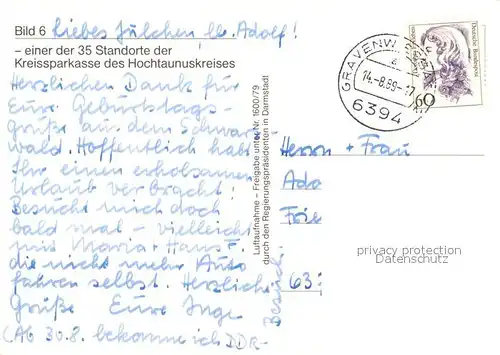 Bild 6 Liebes Julchen, lb. Adolf!
– einer der 35 Standorte der
Kreissparkasse des Hochtaunuskreises
Herzlichen Dank für
Eure Geburtstags-
grüße aus dem Schwarz-
wald. Hoffentlich habt
Ihr einen erholsamen
Urlaub verbracht!
Besucht mich doch
bald mal - vielleicht
mit Maria + Hans F.
die nicht mehr Auto
fahren selbst. Herzliche
Grüße Eure Inge
(Ab 30.8. bekomme ich DDR-
Besuch
Luftaufnahme – Freigabe unter Nr. 1600/79
durch den Regierungspräsidenten in Darmstadt
14.-8.89-17
6394
Deutsche Bundespost
60
Herrn + Frau
Ado
Frie
63
privacy protection
Datenschutz